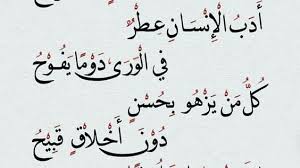 أَدَبُ الْإِنْسَانِ عِطْرٌ
فِي الْوَرَى دَوْمًا يَفُوحُ
كُلُّ مَنْ يَزْهُو بِحُسْنٍ
دُونَ أَخْلَاقٍ قَبِيحُ